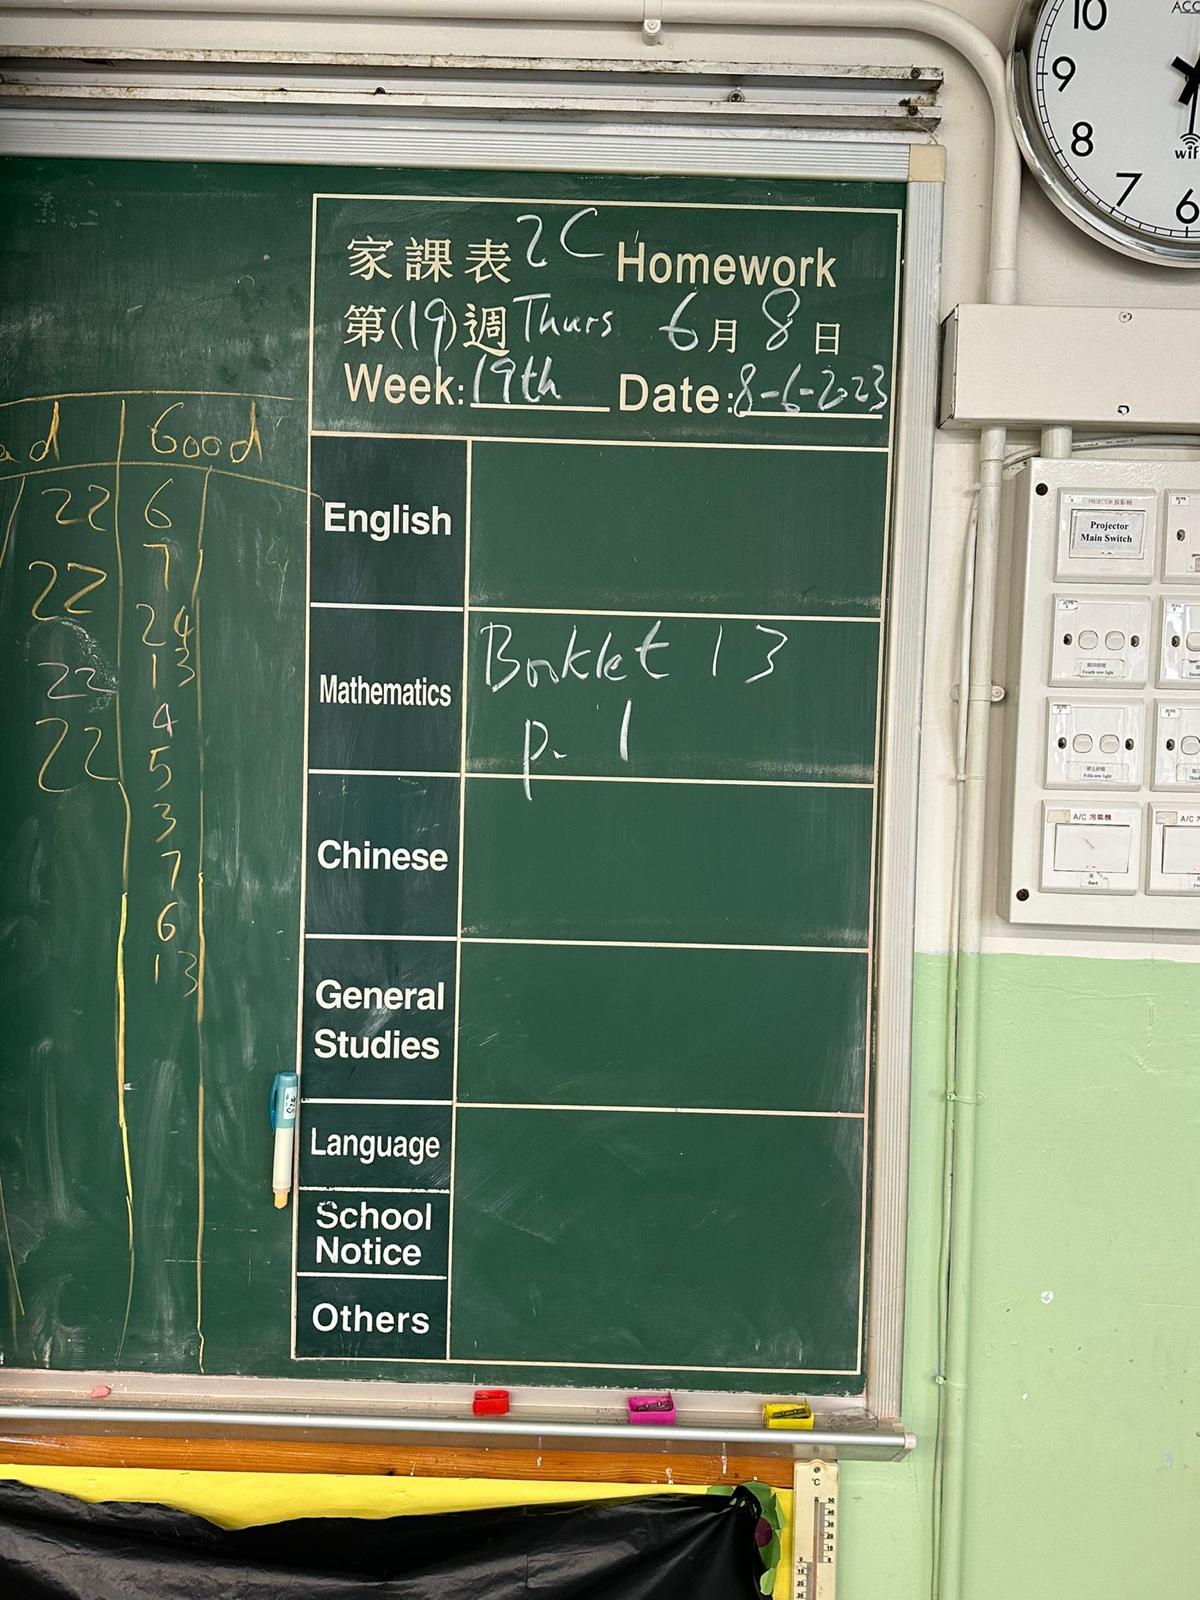 家課表 2C Homework
第(19)週 Thurs 6月8日
Week: 19th Date: 8-6-2023
English
Mathematics Booklet 13
p. 1
Chinese
General
Studies
Language
School
Notice
Others
Good
22 6
22 7
24
22 13
4
22 5
3
7
6
13
10
9
8
7
6
wifi
PROJECTOR 投影機
Projector
Main Switch
A/C 冷氣機
Back
°C